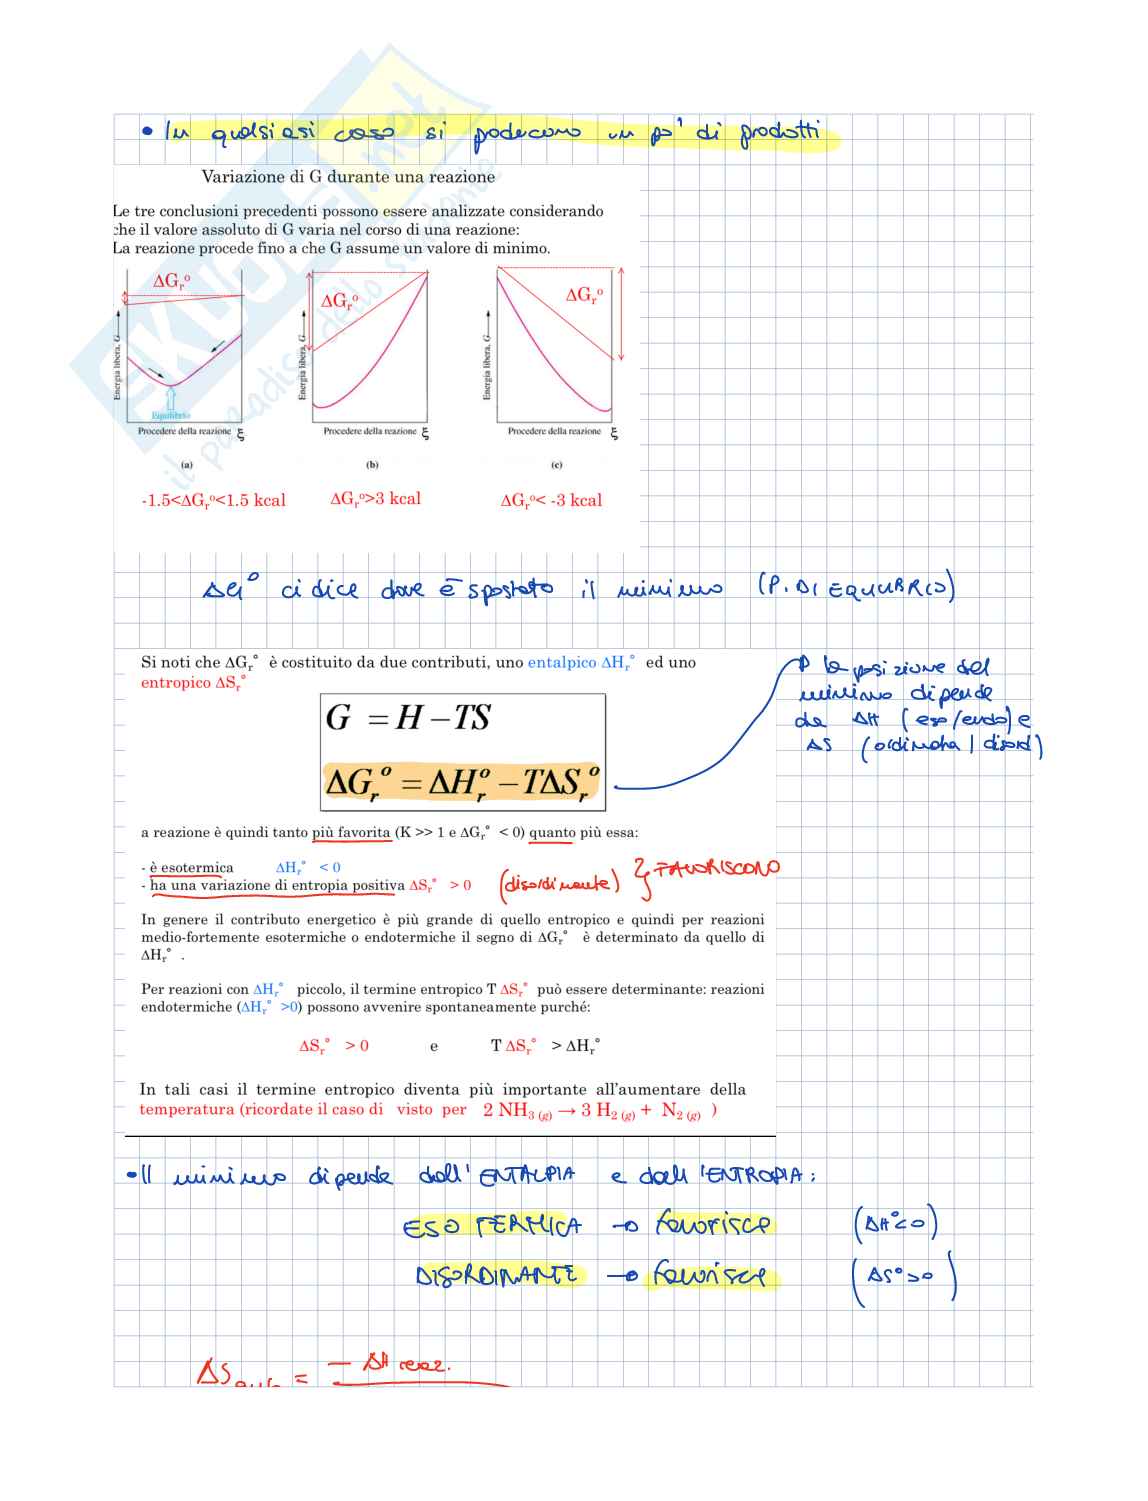 • In qualsiasi caso si producono un po' di prodotti
Variazione di G durante una reazione
Le tre conclusioni precedenti possono essere analizzate considerando
che il valore assoluto di G varia nel corso di una reazione:
La reazione procede fino a che G assume un valore di minimo.
ΔGr° ΔGr° ΔGr°
Energia libera, G Energia libera, G Energia libera, G
Equilibrio
Procedere della reazione ξ Procedere della reazione ξ Procedere della reazione ξ
(a) (b) (c)
-1.5<ΔGr°<1.5 kcal ΔGr°>3 kcal ΔGr°< -3 kcal
ΔG° ci dice dove è spostato il minimo (P. DI EQUILIBRIO)
Si noti che ΔGr° è costituito da due contributi, uno entalpico ΔHr° ed uno
entropico ΔSr°
G = H – TS
ΔGr° = ΔHr° – TΔSr°
la posizione del
minimo dipende
da ΔH (eso/endo) e
ΔS (ordinata | disord)
a reazione è quindi tanto più favorita (K >> 1 e ΔGr° < 0) quanto più essa:
- è esotermica ΔHr° < 0
- ha una variazione di entropia positiva ΔSr° > 0 (disordinante) } FAVORISCONO
In genere il contributo energetico è più grande di quello entropico e quindi per reazioni
medio-fortemente esotermiche o endotermiche il segno di ΔGr° è determinato da quello di
ΔHr° .
Per reazioni con ΔHr° piccolo, il termine entropico T ΔSr° può essere determinante: reazioni
endotermiche (ΔHr° >0) possono avvenire spontaneamente purché:
ΔSr° > 0 e T ΔSr° > ΔHr°
In tali casi il termine entropico diventa più importante all'aumentare della
temperatura (ricordate il caso di visto per 2 NH3 (g) → 3 H2 (g) + N2 (g) )
• Il minimo dipende dall'ENTALPIA e dall'ENTROPIA:
ESOTERMICA → favorisce (ΔH°<0)
DISORDINANTE → favorisce (ΔS°>0)
ΔS = – ΔH reaz.
SKUOLA.net
il paradiso dello studente